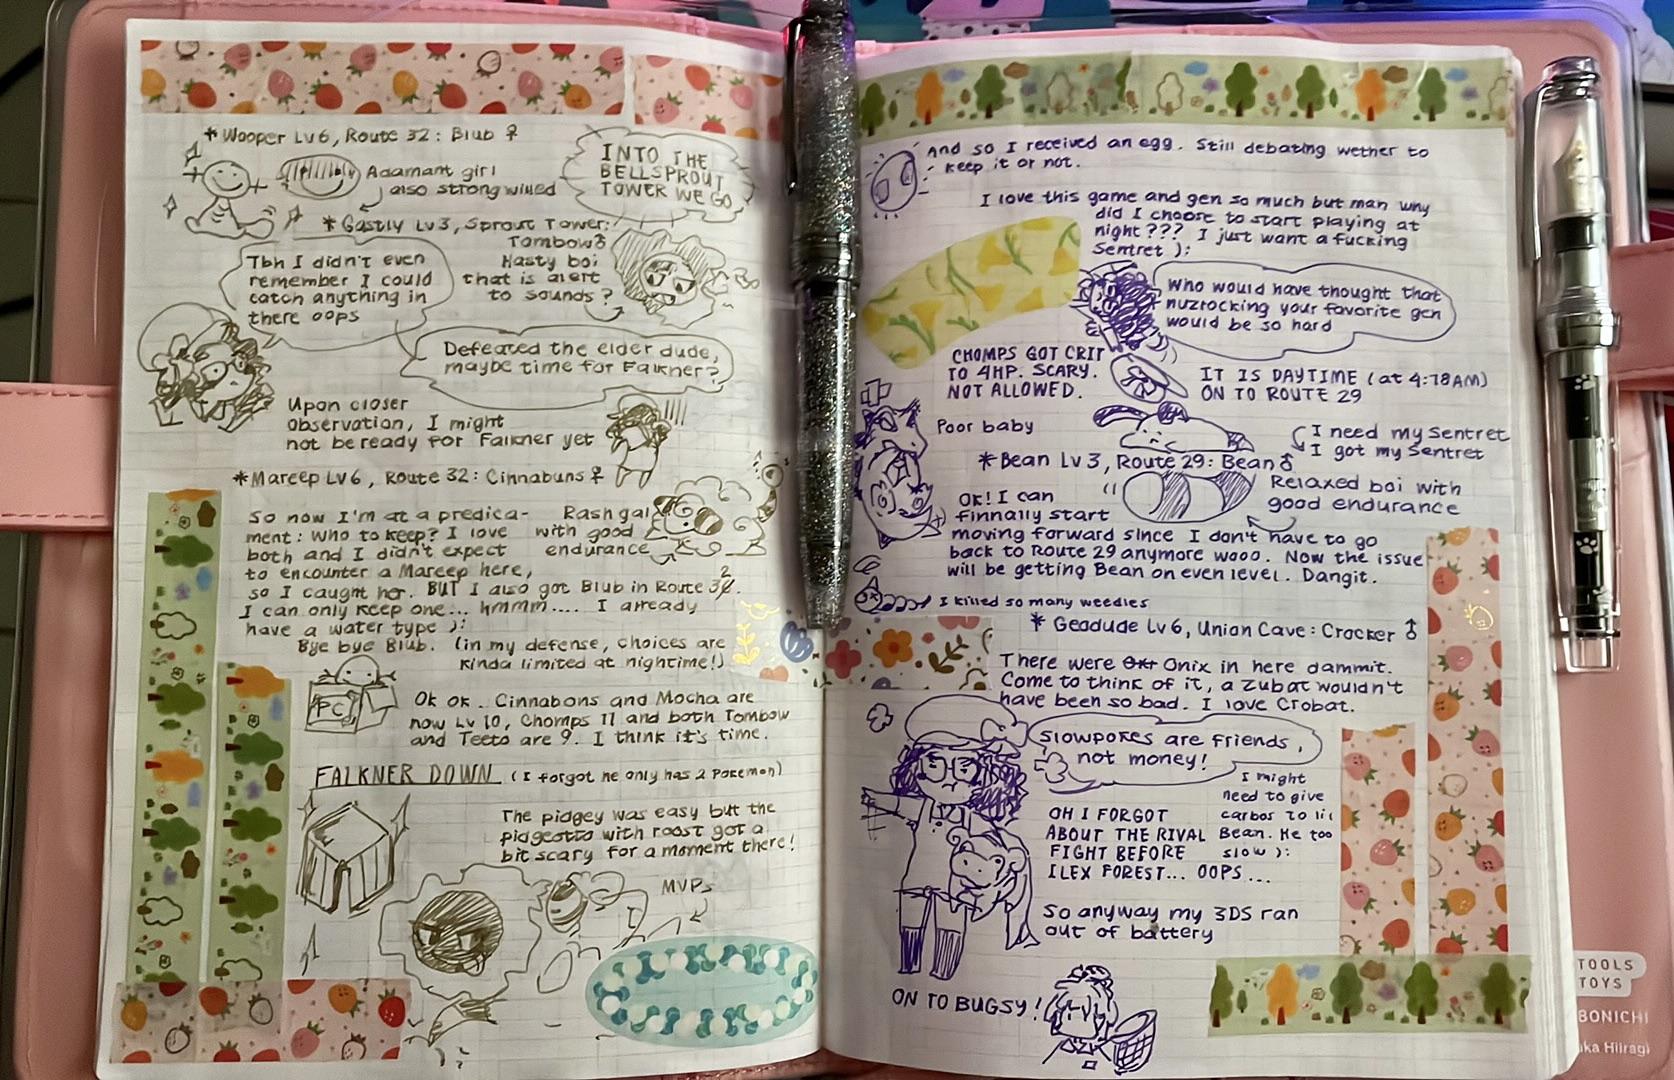 * Wooper Lv6, Route 32: Blub ♀
Adamant girl
also strong willed
INTO THE
BELLSPROUT
TOWER WE GO
* Gastly Lv3, Sprout Tower:
Tombow♂
Hasty boi
that is alert
to sounds?
Tbh I didn't even
remember I could
catch anything in
there oops
Defeated the elder dude,
maybe time for Falkner?
Upon closer
observation, I might
not be ready for Falkner yet
* Mareep Lv6, Route 32: Cinnabuns ♀
Rash gal
with good
endurance
So now I'm at a predica-
ment: Who to keep? I love
both and I didn't expect
to encounter a Mareep here,
so I caught her. BUT I also got Blub in Route 32.
I can only keep one... hmmm.... I already
have a water type ):
Bye bye Blub. (in my defense, choices are
kinda limited at nightime!)
PC
Ok ok. Cinnabons and Mocha are
now Lv 10, Chomps 11 and both Tombow
and Teeto are 9. I think it's time.
FALKNER DOWN (I forgot he only has 2 Pokemon)
The pidgey was easy but the
pidgeotto with roost got a
bit scary for a moment there!
MVPs
And so I received an egg. Still debating wether to
keep it or not.
I love this game and gen so much but man why
did I choose to start playing at
night??? I just want a fucking
Sentret ):
Who would have thought that
nuzrocking your favorite gen
would be so hard
CHOMPS GOT CRIT
TO 4HP. SCARY.
NOT ALLOWED.
IT IS DAYTIME (at 4:18AM)
ON TO ROUTE 29
Poor baby
I need my Sentret
I got my Sentret
* Bean Lv3, Route 29: Bean♂
Relaxed boi with
good endurance
OK! I can
finnally start
moving forward since I don't have to go
back to Route 29 anymore wooo. Now the issue
will be getting Bean on even level. Dangit.
I killed so many weedles
* Geodude Lv6, Union Cave: Cracker ♂
There were Onix in here dammit.
Come to think of it, a Zubat wouldn't
have been so bad. I love Crobat.
Slowpokes are friends,
not money!
I might
need to give
carbos to lil
Bean. He too
slow ):
OH I FORGOT
ABOUT THE RIVAL
FIGHT BEFORE
ILEX FOREST... OOPS...
So anyway my 3DS ran
out of battery
ON TO BUGSY!
TOOLS
TOYS
BONICHI
ka Hiiragi